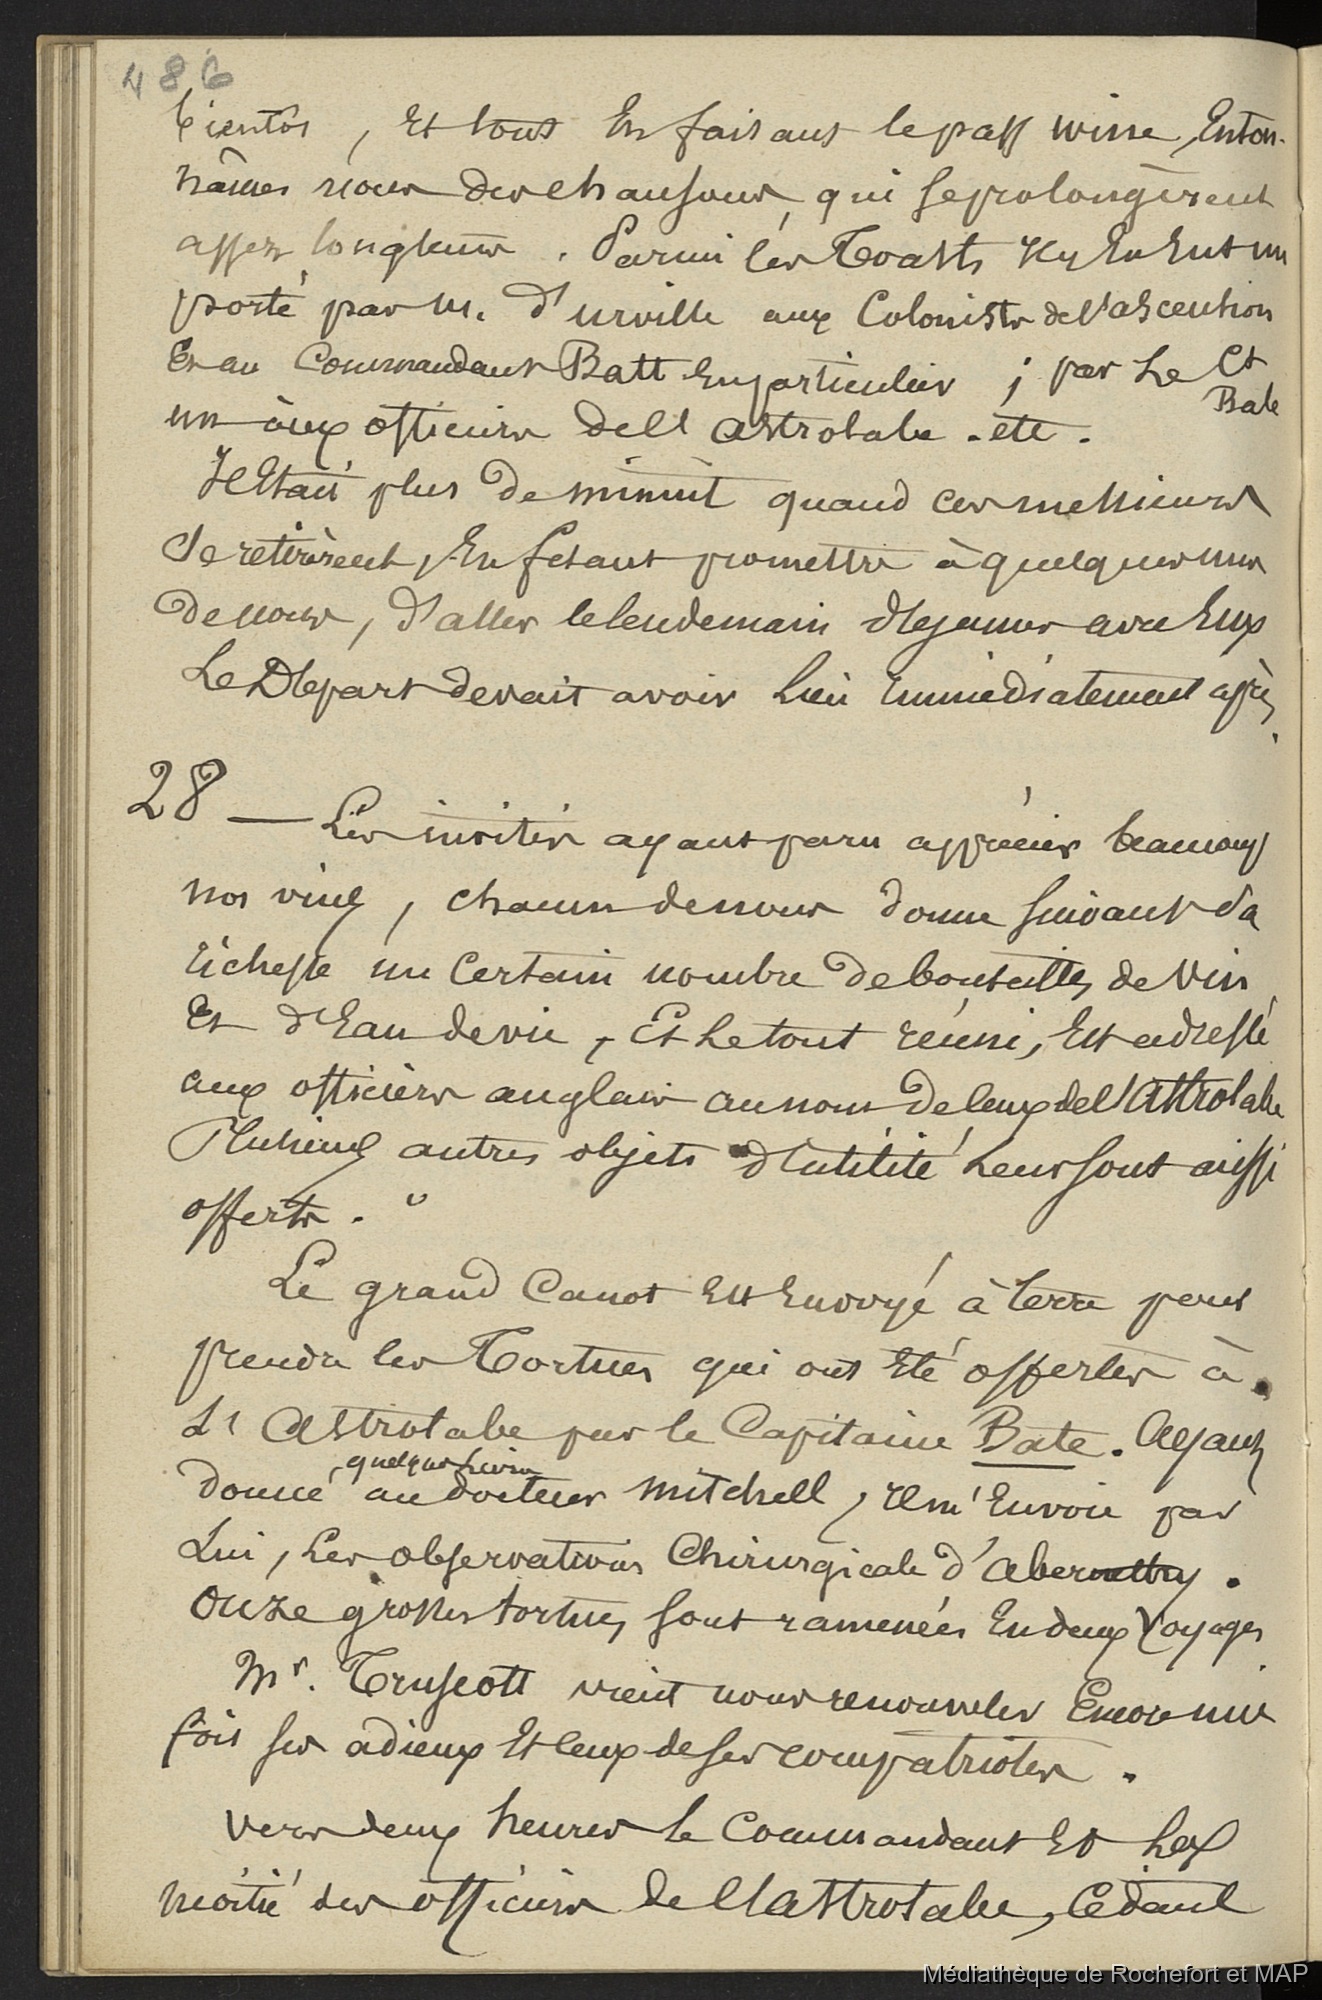 486
bientôt, et tous en faisant le pass wine, enton-
nâmes nous des chansons, qui se prolongèrent
assez longtems. Parmi les Toasts il y en eut un
porté par M. d'urville aux Colonists de l'ascention
et au Commandant Batt en particulier ; par Le Ct
Bate
un aux officiers de l'astrolabe. etc.
Il était plus de minuit quand ces messieurs
se retirèrent, en fesant promettre à quelques uns
de nous, d'aller le lendemain déjeuner avec eux
Le Départ devait avoir lieu immédiatement après.
28 — Les invités ayant paru apprécier beaucoup
nos vins, chacun de nous donne suivant sa
richesse un certain nombre de bouteilles de vin
et d'eau de vie, et le tout réuni, est adressé
aux officiers anglais au nom de ceux de l'astrolabe
Plusieurs autres objets d'utilité leur sont aussi
offerts.
Le grand Canot est envoyé à terre pour
prendre les Tortues qui ont été offertes à
L'astrolabe par le Capitaine Bate. Ayant
quelques livres
donné au docteur mitchell, il m'envoie par
Lui, Les observations Chirurgicale d'abernethy.
Onze grosses tortues sont ramenées en deux voyages.
Mr. Truscott vient nous renouveler encore une
fois ses adieux et ceux de ses compatriotes.
Vers deux heures le commandant et la
moitié des officiers de l'astrolabe, cédant
Médiathèque de Rochefort et MAP